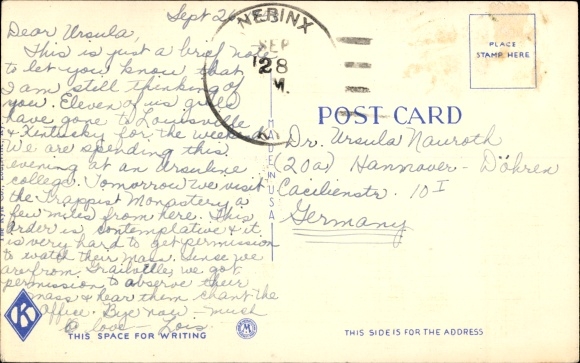 Sept 26
Dear Ursula,
This is just a brief note
to let you know that
I am still thinking of
you. Eleven of us girls
have gone to Louisville
& Kentucky for the weekend
We are spending this
evening at an Ursuline
college. Tomorrow we visit
the Trappist Monastery a
few miles from here. This
order is contemplative & it
is very hard to get permission
to watch their Mass. Sense we
are from Grailville, we got
permission to observe their
Mass & hear them chant the
Office. Bye now - much
love - Lois
THIS SPACE FOR WRITING
K
NERINX
SEP
28
M.
KY.
MADE IN U.S.A.
M
PLACE
STAMP HERE
POST CARD
Dr. Ursula Nauroth
(20a) Hannover - Döhren
Cacilienstr. 10 I
Germany
THIS SIDE IS FOR THE ADDRESS